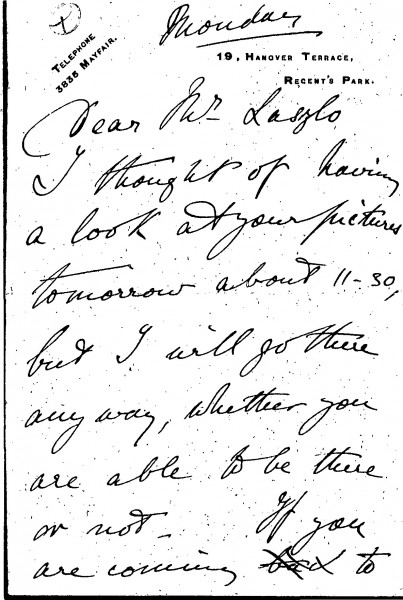 Monday
TELEPHONE
3835 MAYFAIR.
19, HANOVER TERRACE,
REGENT'S PARK.
Dear Mr Laszlo
I thought of having
a look at your pictures
tomorrow about 11-30,
but I will go there
any way, whether you
are able to be there
or not - If you
are coming to